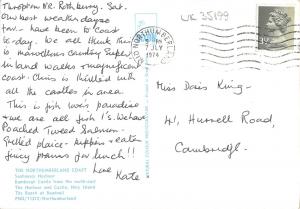 Thropton Nr. Rothbury. Sat.
Our best weather days so
far - have been to coast
to-day. We all think this
is marvellous country. Superb
inland walks & magnificent
coast. Chris is thrilled with
all the castles in area.
This is fish lover's paradise
& we are all fish 1's. We have
Poached Tweed Salmon -
Grilled plaice - kippers & eaten
juicy prawns for lunch!!
Love Kate
THE NORTHUMBERLAND COAST
Seahouses Harbour
Bamburgh Castle from the north-west
The Harbour and Castle, Holy Island
The Beach at Beadnell
NORTHUMBERLAND
7 JLY
1974
UK 35199
Miss Doris King -
41, Hurrell Road,
Cambridge.